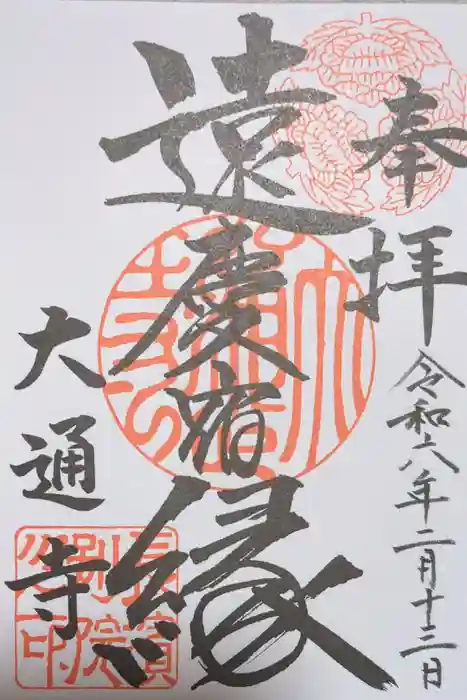 奉拝
令和六年二月十三日
遠慶宿縁
大通寺
長濱
別院